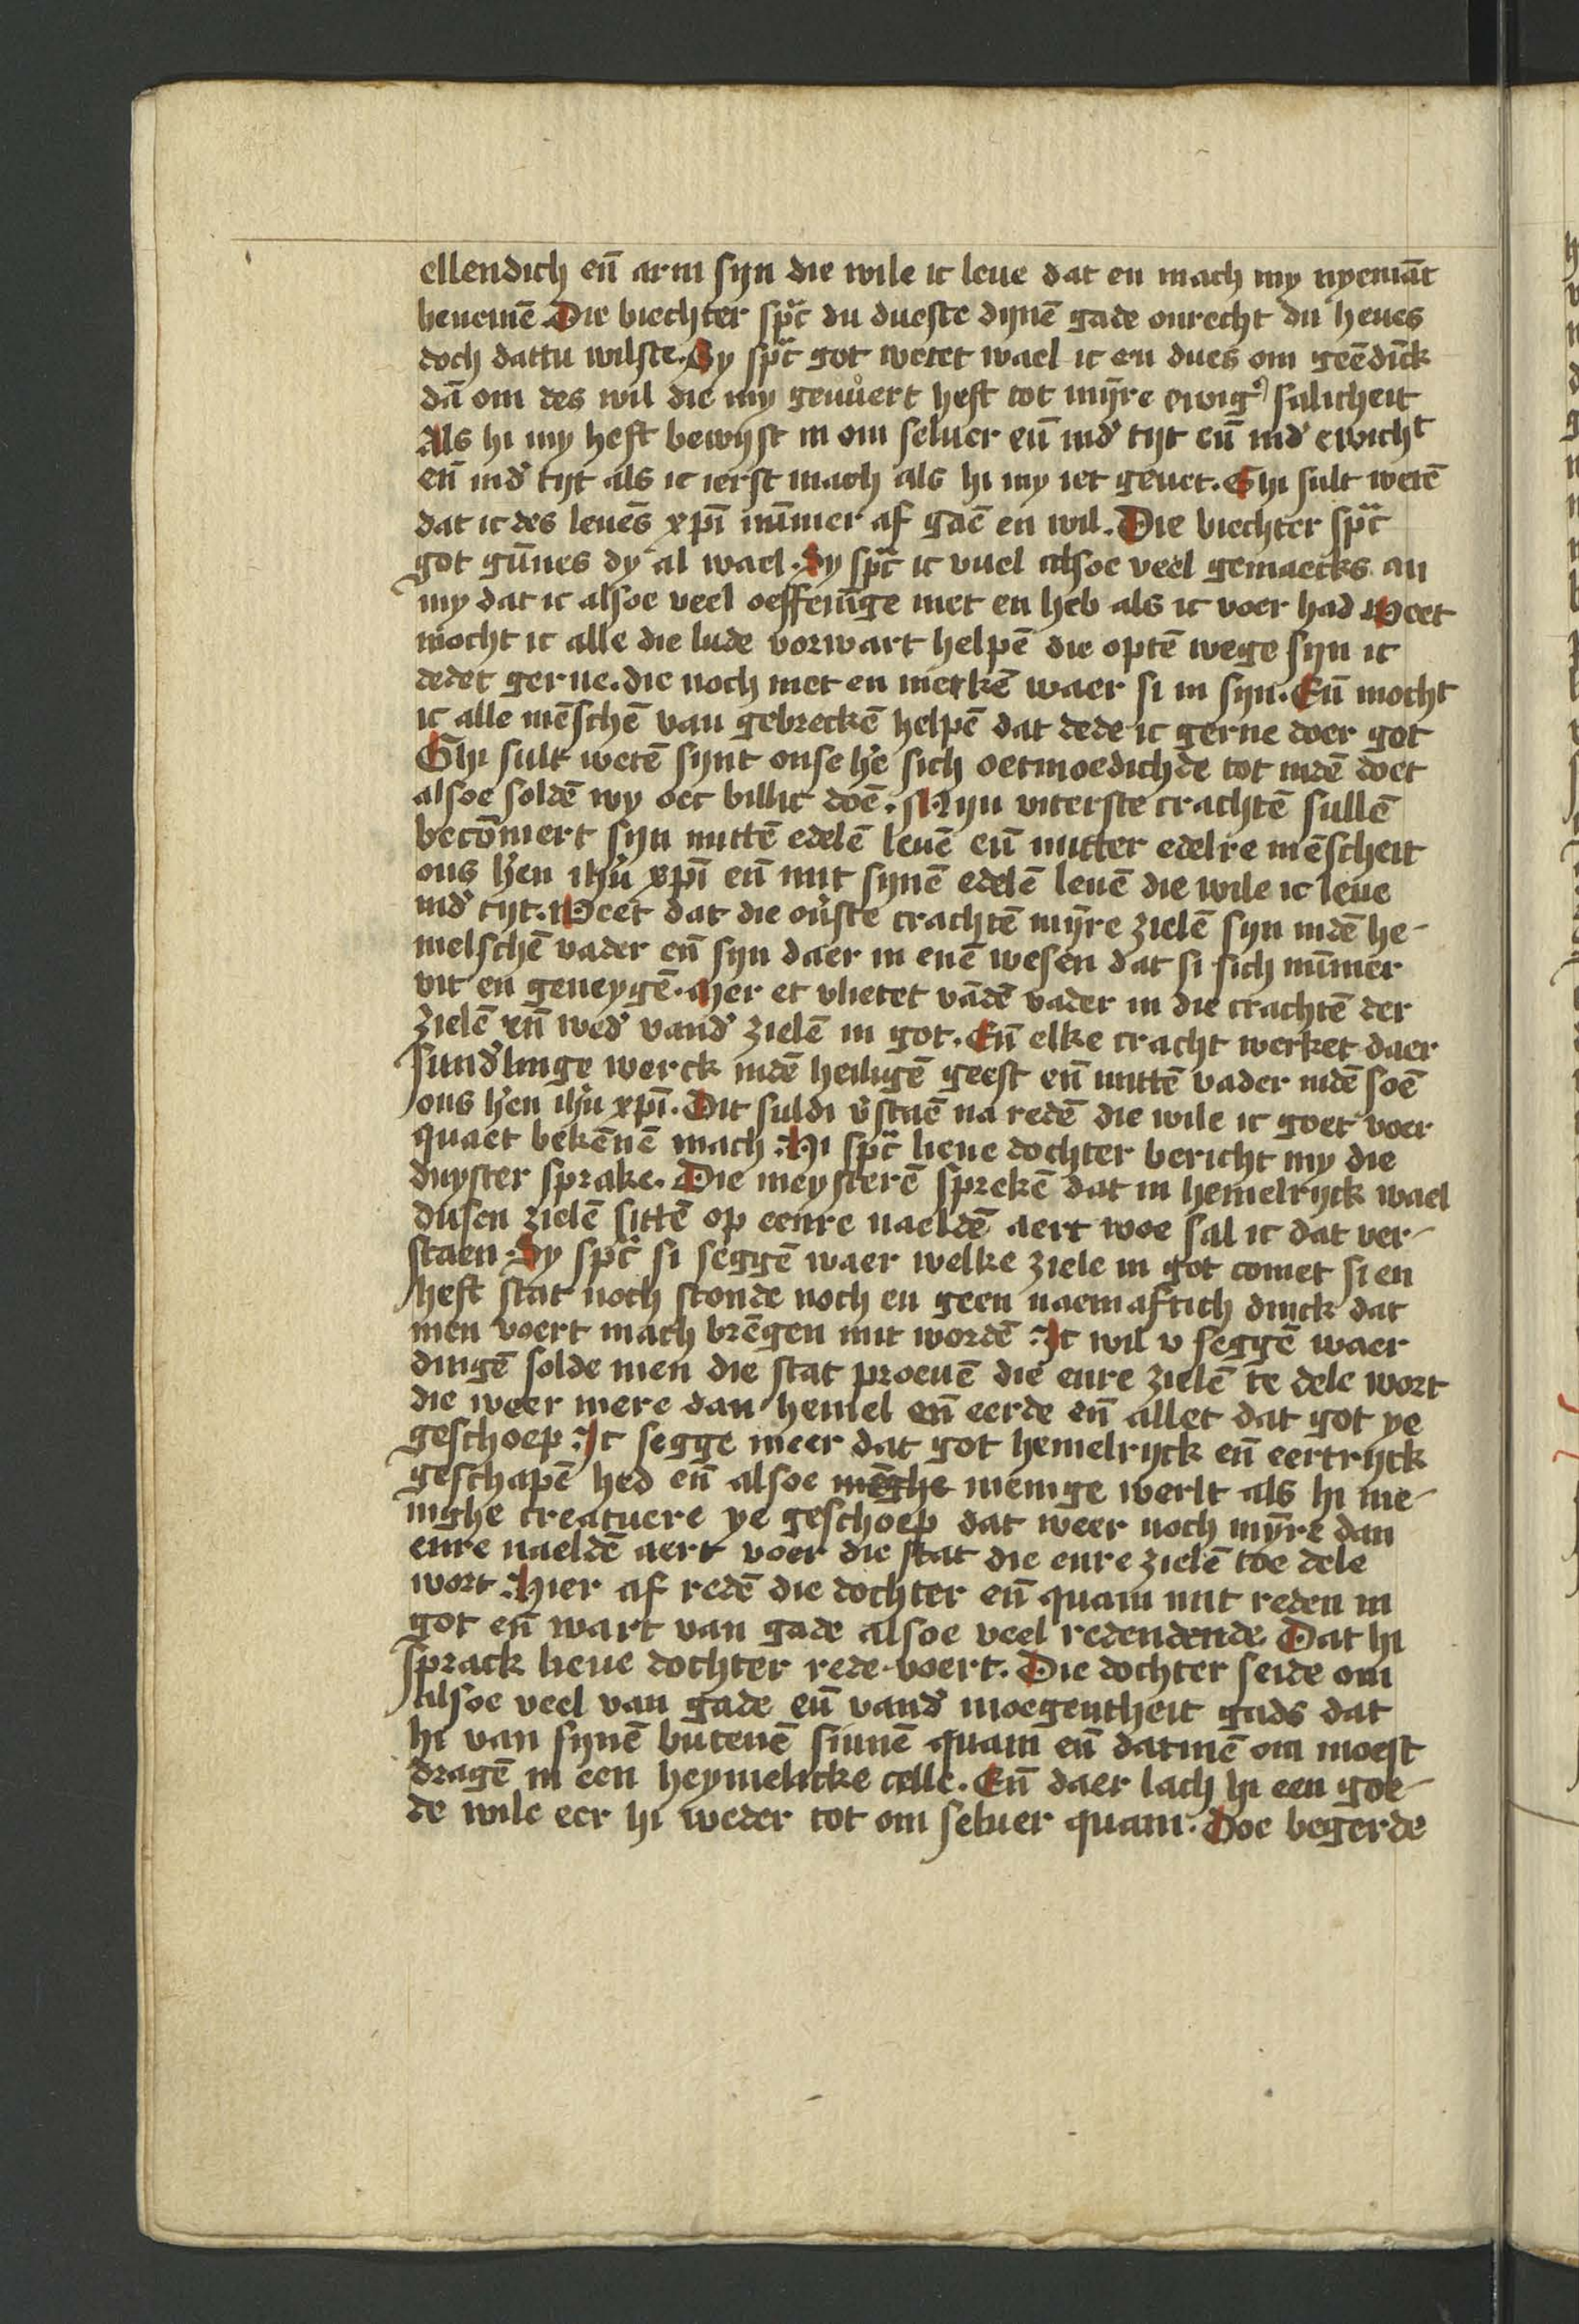 ellendich en̄ arm sijn die wile ic leue dat en mach my nyemāt
benemē Die biechter spᵃc̄ du dueste dijnē gade onrecht du heues
doch dattu wilste. Sy spᵃc̄ got wetet wael ic en dues om geēdīck
dā om des wil die my geuůert heft tot mijr̄e ewigͬ salicheit
Als hi my heft bewijst in om seluer en̄ indͬ tijt en̄ indͬ ewichᵗ
en̄ indͬ tijt als ic ierst mach als hi my iet geuet. Ghi sult wetē
dat ic des leuēs xp̄i nūmer af gaē en wil. Die biechter spᵃc̄
got gūnes dy al wael. Sy spᵃc̄ ic vuel alsoe veel gemaecks an
my dat ic alsoe veel oeffenīge niet en heb als ic voer had Weet
mocht ic alle die lude vorwart helpē die optē wege sijn ic
dedet gerne. die noch niet en merkē waer si in sijn. En̄ mocht
ic alle mēschē van gebreckē helpē dat dede ic gerne doer got
Ghi sult wetē sijnt onse h̄e sich oetmoedichde tot indē doet
alsoe soldē wy oec billic doē. Mijn viterste crachtē sullē
becōmert sijn mittē edelē leuē en̄ mitter edelre mēscheit
ons h̄en ih̄u xp̄i en̄ mit sijnē edelē leuē die wile ic leue
indͬ tijt. Weet dat die ou̓ste crachtē mijr̄e zielē sijn indē he-
melschē vader en̄ sijn daer in enē wesen dat si sich nūmer
vit en geneygē. Mer et vlietet vādē vader in die crachtē der
zielē en̄ wedͬ vandͬ zielē in got. En̄ elke cracht werket daer
sundͬlinge werck indē heiligē geest en̄ mittē vader indē soē
ons h̄en ih̄u xp̄i. Dit suldi v̓staē na redē die wile ic goet voer
quaet bekēnē mach. Hi spᵃc̄ lieue dochter bericht my die
duyster sprake. Die meysterē sprekē dat in hemelrijck wael
dusen zielē sittē op eenre naeldē aert woe sal ic dat ver-
staen. Sy spᵃc̄ si seggē waer welke ziele in got comet si en
heft stat noch stonde noch en geen naemaftich dinck dat
men voert mach brēgen mit wordē. Ic wil v seggē waer
dingē solde men die stat proeuē die enre zielē te dele wort
die weer mere dan hemel en̄ eerde en̄ allet dat got ye
geschoep. Ic segge meer dat got hemelrijck en̄ eertrijck
geschapē hed en̄ alsoe mēghe menige werlt als hi me-
nighe creatuere ye geschoep dat weer noch mijr̄e dan
enre naeldē aert voer die stat die enre zielē toe dele
wort. Hier af redē die dochter en̄ quam mit reden in
got en̄ wart van gade alsoe veel redendende. Dat hi
sprack lieue dochter rede voert. Die dochter seide om
alsoe veel van gade en̄ vandͬ moegentheit gads dat
hi van sijnē butenē sinnē quam en̄ datmē om moest
dragē in een heymelicke celle. En̄ daer lach hi een goe-
de wile eer hi weder tot om seluer quam. Doe begerde